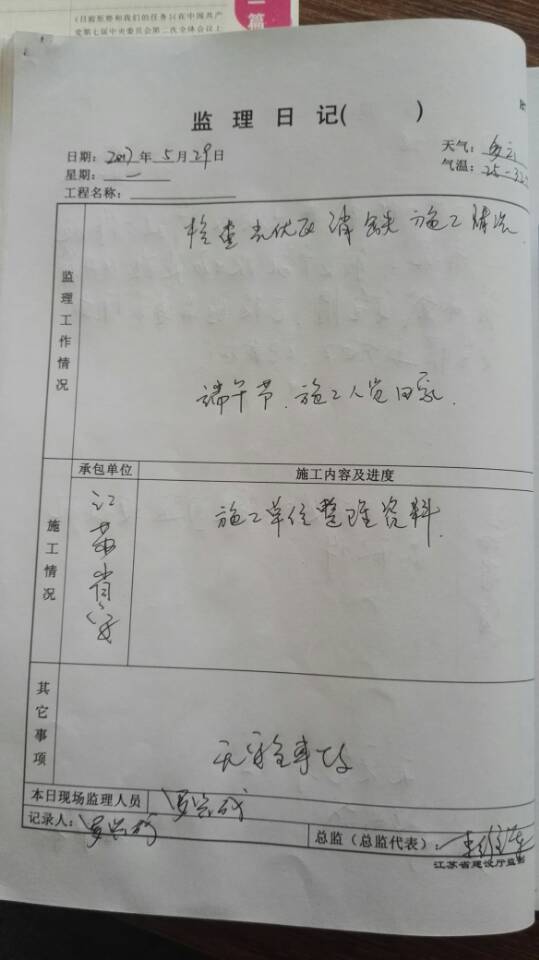 (目前形势和我们的任务)(在中国共产
党第七届中央委员会第二次全体会议上
一篇
监 理 日 记( )
日期：2017年5月29日
天气：多云
星期：一
气温：25-32
工程名称：
监理工作情况
检查光伏区消缺施工情况
端午节.施工人员回家.
承包单位
施工内容及进度
施工情况
江苏省安
施工单位整理资料
其它事项
无安全事故
本日现场监理人员
记录人：
总监（总监代表）：
江苏省建设厅监制